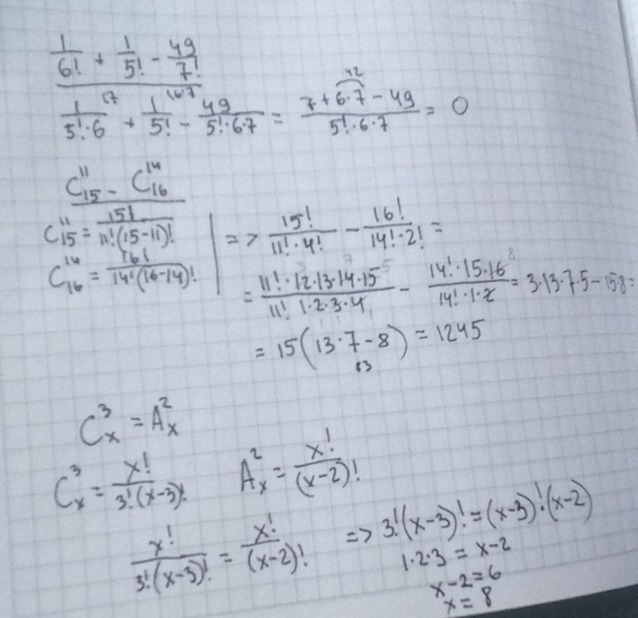 1/6! + 1/5! - 49/7!
1/5!·6 + 1/5! - 49/5!·6·7 = 7+6·7-49/5!·6·7 = 0
C¹¹₁₅ - C¹⁴₁₆
C¹¹₁₅ = 15!/11!(15-11)!
C¹⁴₁₆ = 16!/14!(16-14)!
=> 15!/11!·4! - 16!/14!·2! =
= 11!·12·13·14·15/11! 1·2·3·4 - 14!·15·16/14!·1·2 = 3·13·7·5 - 15·8 =
= 15(13·7-8) = 1245
83
C³ₓ = A²ₓ
C³ₓ = x!/3!(x-3)! A²ₓ = x!/(x-2)!
x!/3!(x-3)! = x!/(x-2)! => 3!(x-3)! = (x-3)!(x-2)
1·2·3 = x-2
x-2=6
x=8